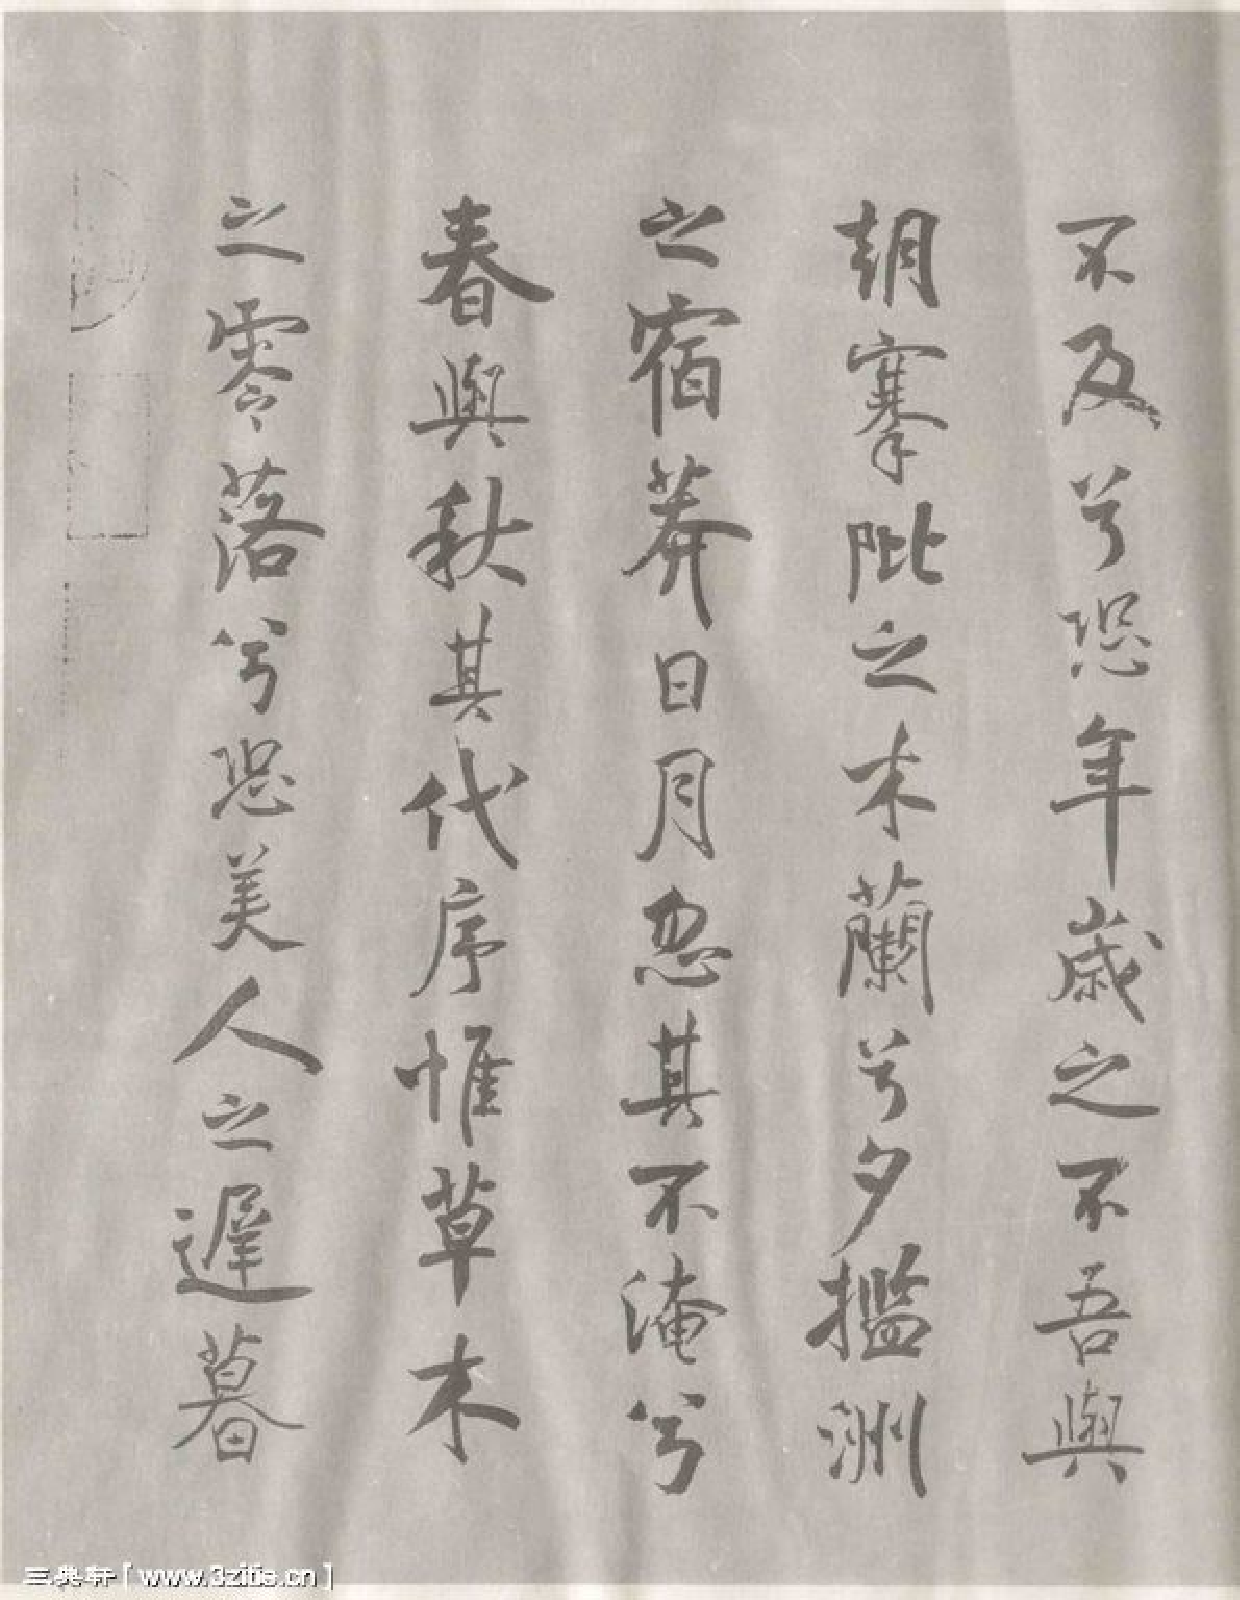 不及兮恐年歲之不吾與
朝搴阰之木蘭兮夕擥洲
之宿莽日月忽其不淹兮
春與秋其代序惟草木
之零落兮恐美人之遲暮
三典轩「www.3zitie.cn」